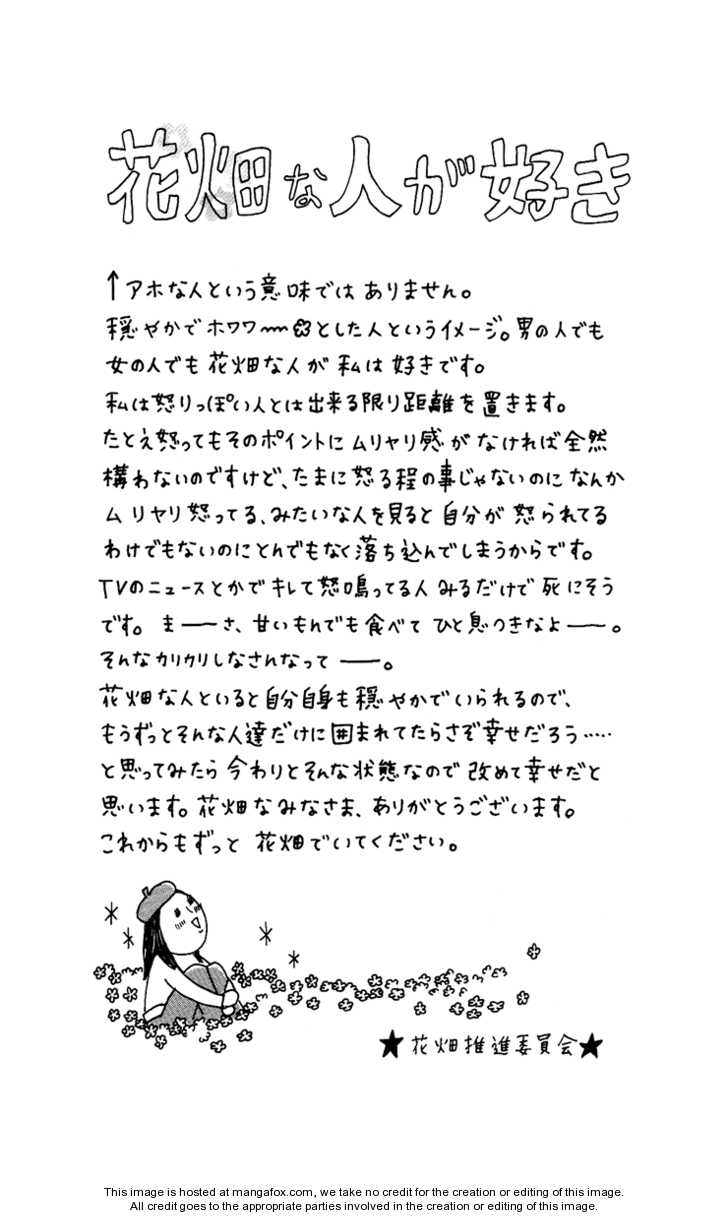 花畑な人が好き
↑アホな人という意味ではありません。
穏やかでホワワ〰✿とした人というイメージ。男の人でも
女の人でも花畑な人が私は好きです。
私は怒りっぽい人とは出来る限り距離を置きます。
たとえ怒ってもそのポイントにムリヤリ感がなければ全然
構わないのですけど、たまに怒る程の事じゃないのになんか
ムリヤリ怒ってる、みたいな人を見ると自分が怒られてる
わけでもないのにとんでもなく落ち込んでしまうからです。
TVのニュースとかでキレて怒鳴ってる人みるだけで死にそう
です。ま――さ、甘いもんでも食べてひと息つきなよ――。
そんなカリカリしなさんなって――。
花畑な人といると自分自身も穏やかでいられるので、
もうずっとそんな人達だけに囲まれてたらさぞ幸せだろう‥‥‥
と思ってみたら今わりとそんな状態なので改めて幸せだと
思います。花畑なみなさま、ありがとうございます。
これからもずっと花畑でいてください。
★花畑推進委員会★
This image is hosted at mangafox.com, we take no credit for the creation or editing of this image.
All credit goes to the appropriate parties involved in the creation or editing of this image.